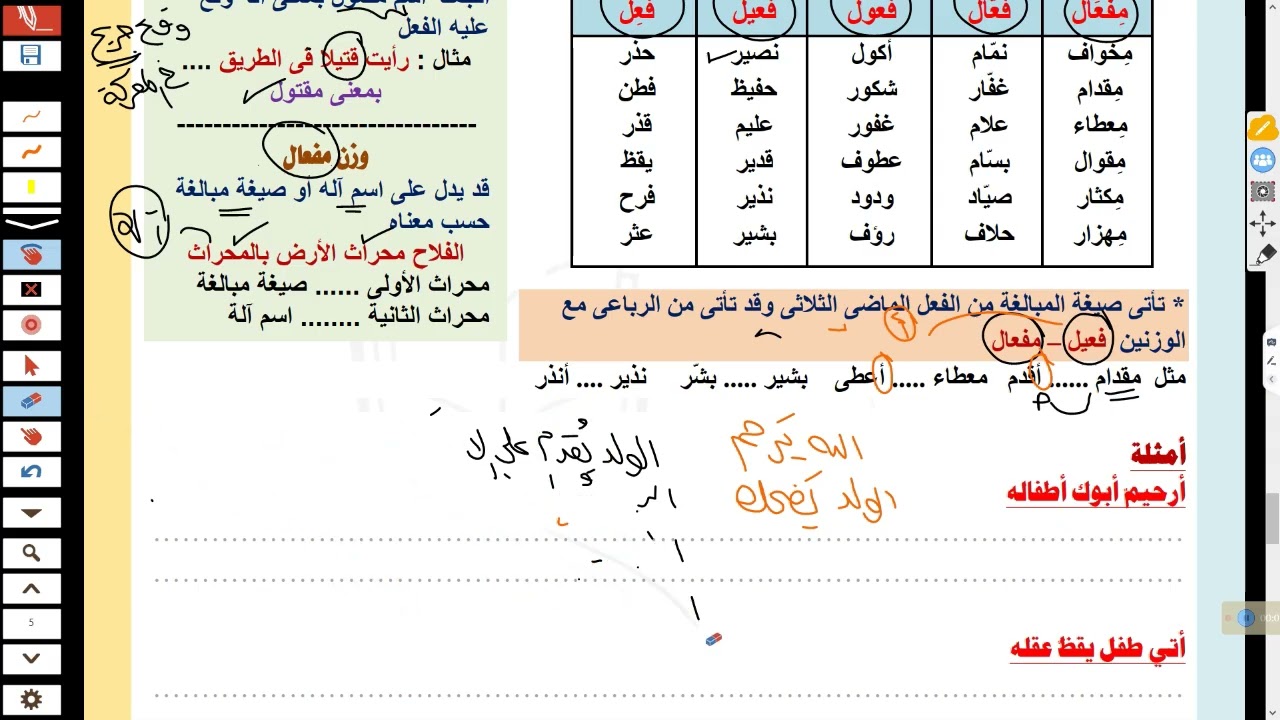 مِفْعَال فَعَّال فَعُول فَعِيل فَعِل
مِخواف نمّام أكول نصير حذر
مِقدام غفّار شكور حفيظ فطن
مِعطاء علام غفور عليم قذر
مِقوال بسّام عطوف قدير يقظ
مِكثار صيّاد ودود نذير فرح
مِهزار حلاف رؤف بشير عثر
* تأتى صيغة المبالغة من الفعل الماضى الثلاثى وقد تأتى من الرباعى مع
الوزنين فعيل – مفعال
مثل مقدام ...... أقدم معطاء ..... أعطى بشير ..... بشّر نذير .... أنذر
أمثلة
أرحيمٌ أبوك أطفاله
أتي طفل يقظٌ عقله
الله يرحم
الولد يضحك
الولد يُقدم علي
عليه الفعل
مثال : رأيت قتيلا فى الطريق ....
بمعنى مقتول
وزن مفعال
قد يدل على اسم آله أو صيغة مبالغة
حسب معناه
الفلاح محراث الأرض بالمحراث
محراث الأولى ...... صيغة مبالغة
محراث الثانية ........ اسم آلة
وقع جريح
فى المعركة
5